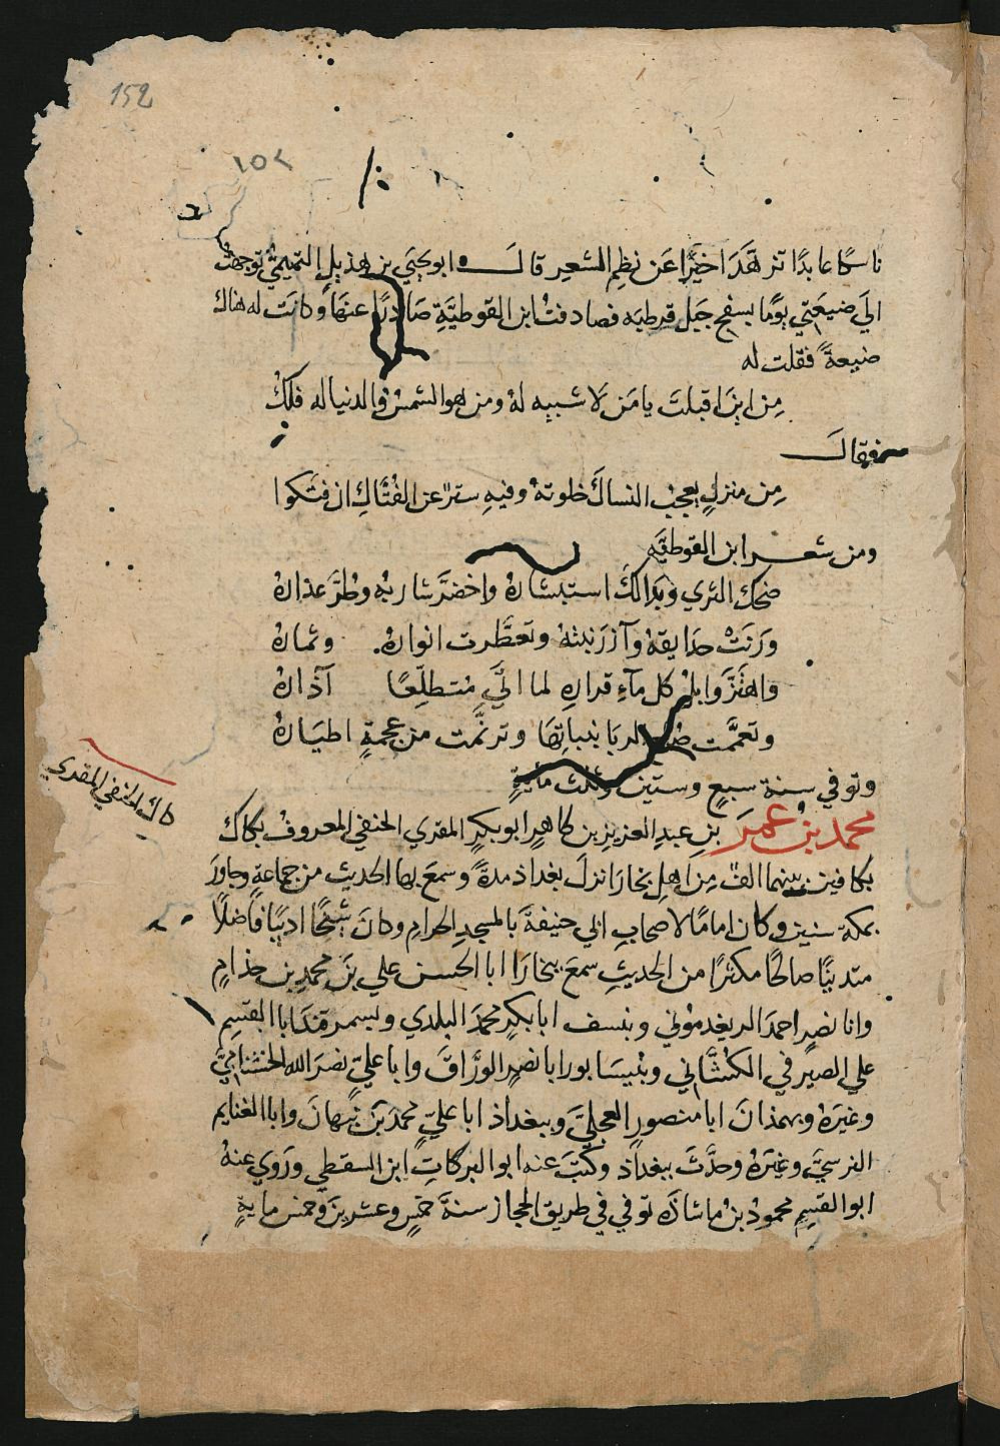 152
١٥٢
ناسكا عابدًا تزهَّدَ اخيرًا عَن نظمِ الشعرِ قالَ ابو يحيَي بن هذيلٍ التميميُّ توجهت
الَي ضيعَتي يومًا بسفح جبَل قرطبَه فصادفتُ ابن القوطيَّةِ صَادرًا عنهَا وكانَت له هناك
ضيعةً فقلت له
مِن اينَ اقبلتَ يا مَن لا شبيه لهُ ومن هو الشمسُ والدنيا له فلكُ
فقالَ
مِن منزلٍ يعجبُ النساكَ خلوتهُ وفيهِ سترٌ عن الفُتَّاكِ ان فتَكوا
ومن شعر ابن القوطيَّه
ضحك الثري وبدَا لكَ استبشارهُ واخضرَّ شاربُه وطرَّ عذارهُ
ورَنَتْ حدَايقهُ وآزرَ نبتهُ وتعطَّرت انوارهُ . وثمارهُ
واهتزَّ ذابلُ كل مآءِ قرارهِ لما اتَي متطلِّعًا آذارهُ
وتعمَّمت صُلعُ الربَا بنباتِهَا وترنَّمت من عجمةٍ اطيَارهُ
وتوفي سنة سبعٍ وستين وثلث مايةٍ
كاك الحنفي المقري
محمد بنُ عمرَ بنِ عبدِ العزيزِ بن طاهرٍ ابو بكرٍ المقري الحنفي المعروفُ بكاك
بكافين بينهما الفٌ مِن اهلِ بخارَا نزلَ بغداذ مدةً وسمعَ بها الحديث من جماعةٍ وجاورَ
بمكة سنين وكان امامًا لاصحابِ ابي حنيفةَ بالمسجدِ الحرامِ وكانَ شيخًا اديبًا فاضلًا
متدينًا صالحًا مكثرًا من الحديثِ سمعَ ببخارَا ابا الحسن علي بنَ محمدِ بن خذامٍ
وابا نصرٍ احمدَ الريغدموني وبنسف ابا بكرٍ محمدَ البلدي وبسمرقندَ ابا القسِم
علي الصيرفي الكشَّاني وبنيسَابور ابا نصرٍ الورَّاقَ وابا عليٍّ نصرَ الله الخشنامِيَّ
وغيرَهُ وبهمذانَ ابا منصورٍ العجليَّ وببغداذ ابا عليٍّ محمدَ بنَ نبهانَ وابا الغنايم
النرسيَّ وغيرَهُ وحدَّثَ ببغداذ وكتبَ عنه ابو البركاتِ ابن السقطي ورَوي عنهُ
ابو القسِم محمودُ بنُ ماشاذَه توفي في طريقِ الحجاز سنةَ خمسٍ وعشرينَ وخمس مايةٍ